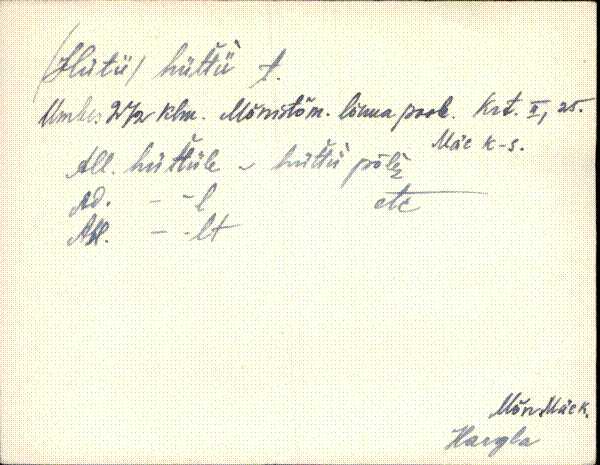 (Hütü) hüttü t.
Umbes 2½ klm. Mõnistõm. lõuna pool. Krt. II, 25.
Mäe k-s.
All. hüttüle ~ hüttü põlĺ
Ad. – -l etc
Abl. – -lt
Mõn. Mäe k.
Hargla